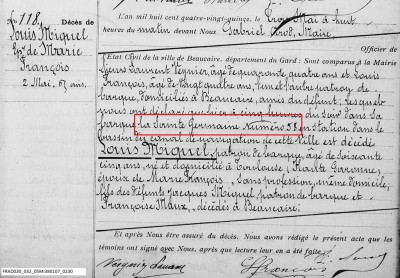 No 118.
Décès de
Louis Miquel
Ep. de Marie
François
2 Mai, 67 ans.
L'an mil huit cent quatre-vingt-quinze, le trois Mai à huit
heures du matin devant Nous Gabriel Maire,
Officier de
l'Etat Civil de la ville de Beaucaire, département du Gard : Sont comparus à la Mairie
Laurent Veynier, âgé de quarante quatre ans et Louis
François, âgé de vingt quatre ans, l'un et l'autre patron de
barque, domiciliés à Beaucaire, amis du défunt, lesquels
nous ont déclaré que hier à cinq heures du soir dans sa
barque la Sainte Germaine Numéro 58, en station dans le
bassin du canal de navigation de cette ville est décédé
Louis Miquel, patron de barque, âgé de soixante
ans, né et domicilié à Toulouse (Haute Garonne)
époux de Marie François, sans profession, même domicile,
fils des défunts Jacques Miquel patron de barque et
Françoise Maux, décédés à Beaucaire;
Et après Nous être assuré du décès, Nous avons rédigé le présent acte que les
témoins ont signé avec Nous, après que lecture leur en a été faite.
Veynier Laurent
L François
FRAD030_032_05MI380107_0230